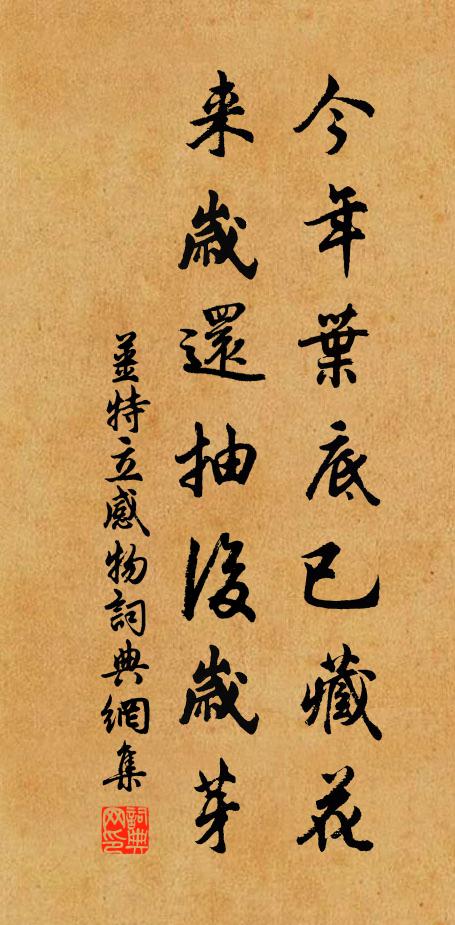 今年葉底已藏花
来歲還抽後歲芽
薑特立感物詞典網集
詞典網印